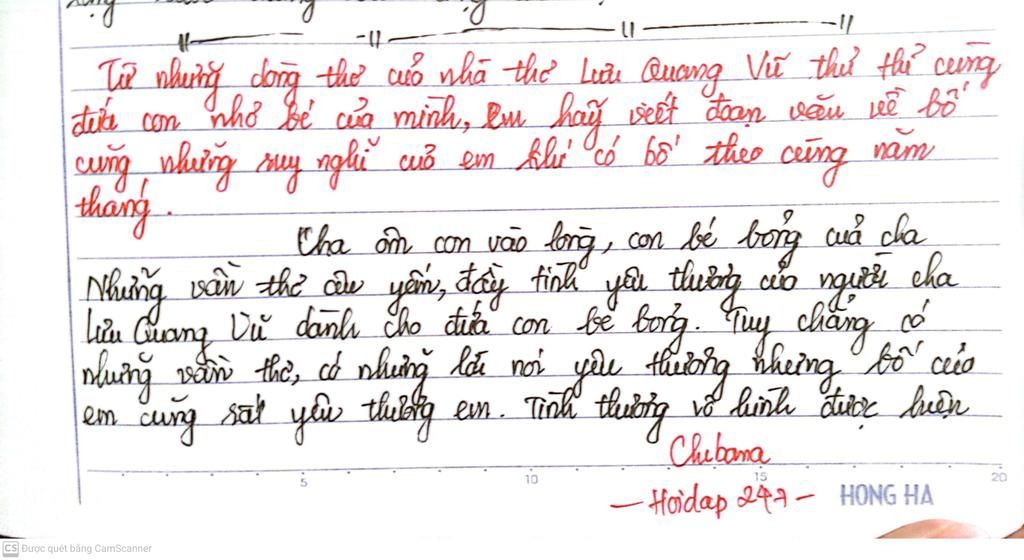 Từ những dòng thơ của nhà thơ Lưu Quang Vũ thủ thỉ cùng
đứa con nhỏ bé của mình, Em hãy viết đoạn văn về bố
cùng những suy nghĩ của em khi có bố theo cùng năm
tháng.
Cha ôm con vào lòng, con bé bỏng của cha
Những vần thơ âu yếm, đầy tình yêu thương của người cha
Lưu Quang Vũ dành cho đứa con bé bỏng. Tuy chẳng có
những vần thơ, có những lời nói yêu thương nhưng bố của
em cũng rất yêu thương em. Tình thương vô hình được hiện
Chibana
5 10 15 20
- Hoidap 247 - HONG HA
CS Được quét bằng CamScanner